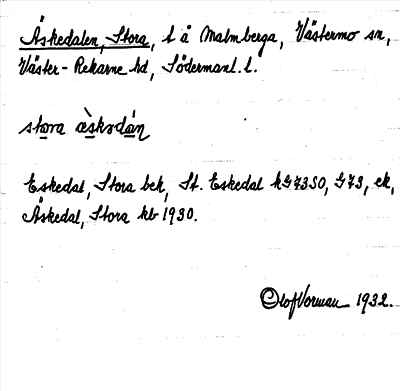 Åskedalen, Stora, t å Malmberga, Västermo sn,
Väster-Rekarne hd, Södermanl. l.
stora æ̀skədán
Eskedal, Stora bek, St. Eskedal kG 7350, G 73, ek,
Åskedal, Stora kb 1930.
Olof Vorman 1932.